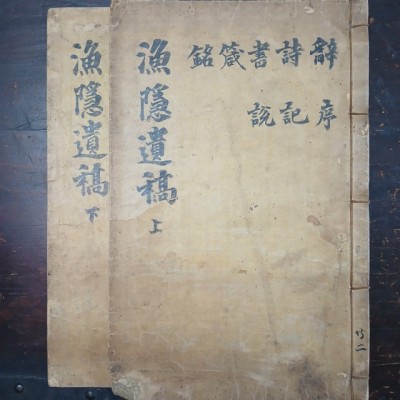 辭序
詩記
書說
箴
銘
漁隱遺稿 上
共二
漁隱遺稿 下